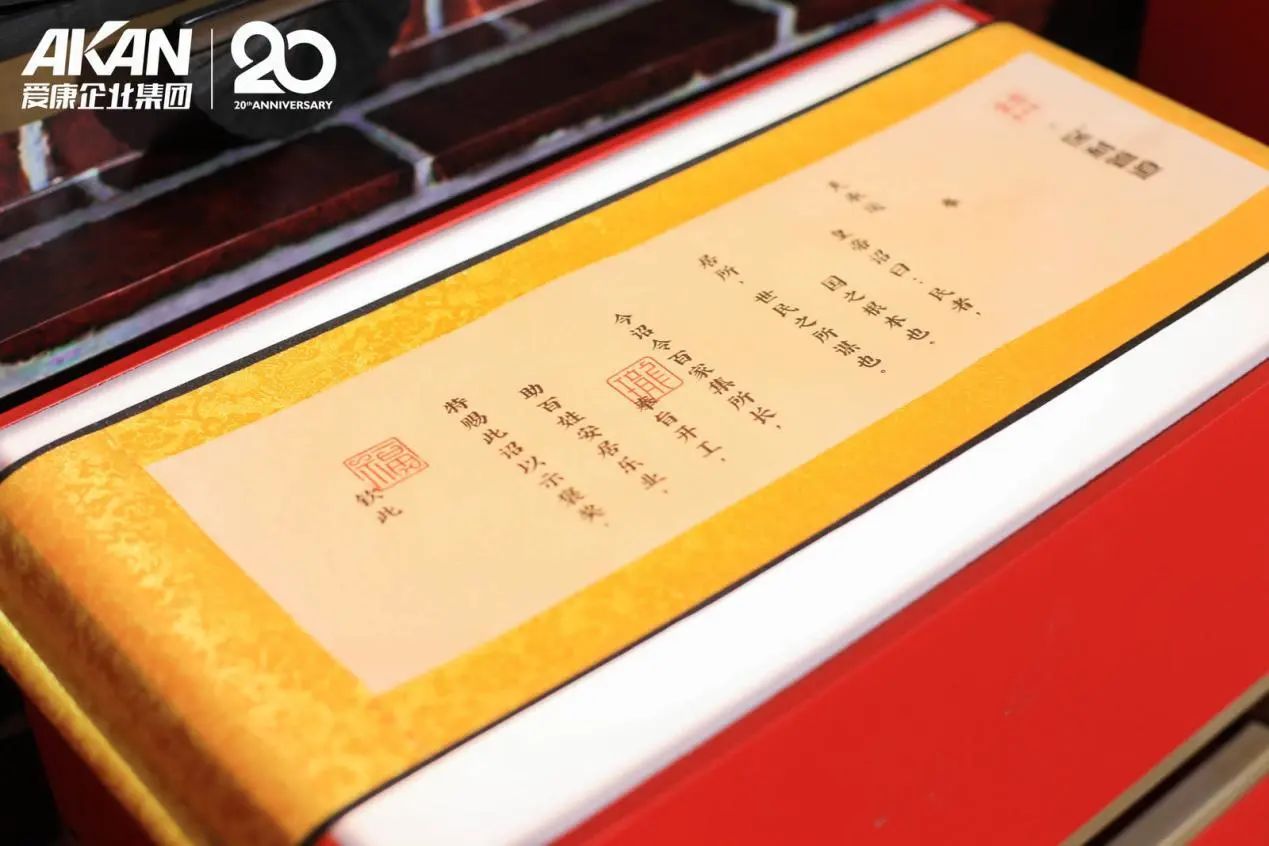 AKAN
爱康企业集团
20
20th ANNIVERSARY
奉
天承运
皇帝诏曰：民者，
国之根本也，
居所，
世民之所谋也。
今诏令百家集所长，
奉旨开工，
助百姓安居乐业，
特赐此诏以示褒奖，
钦此
福